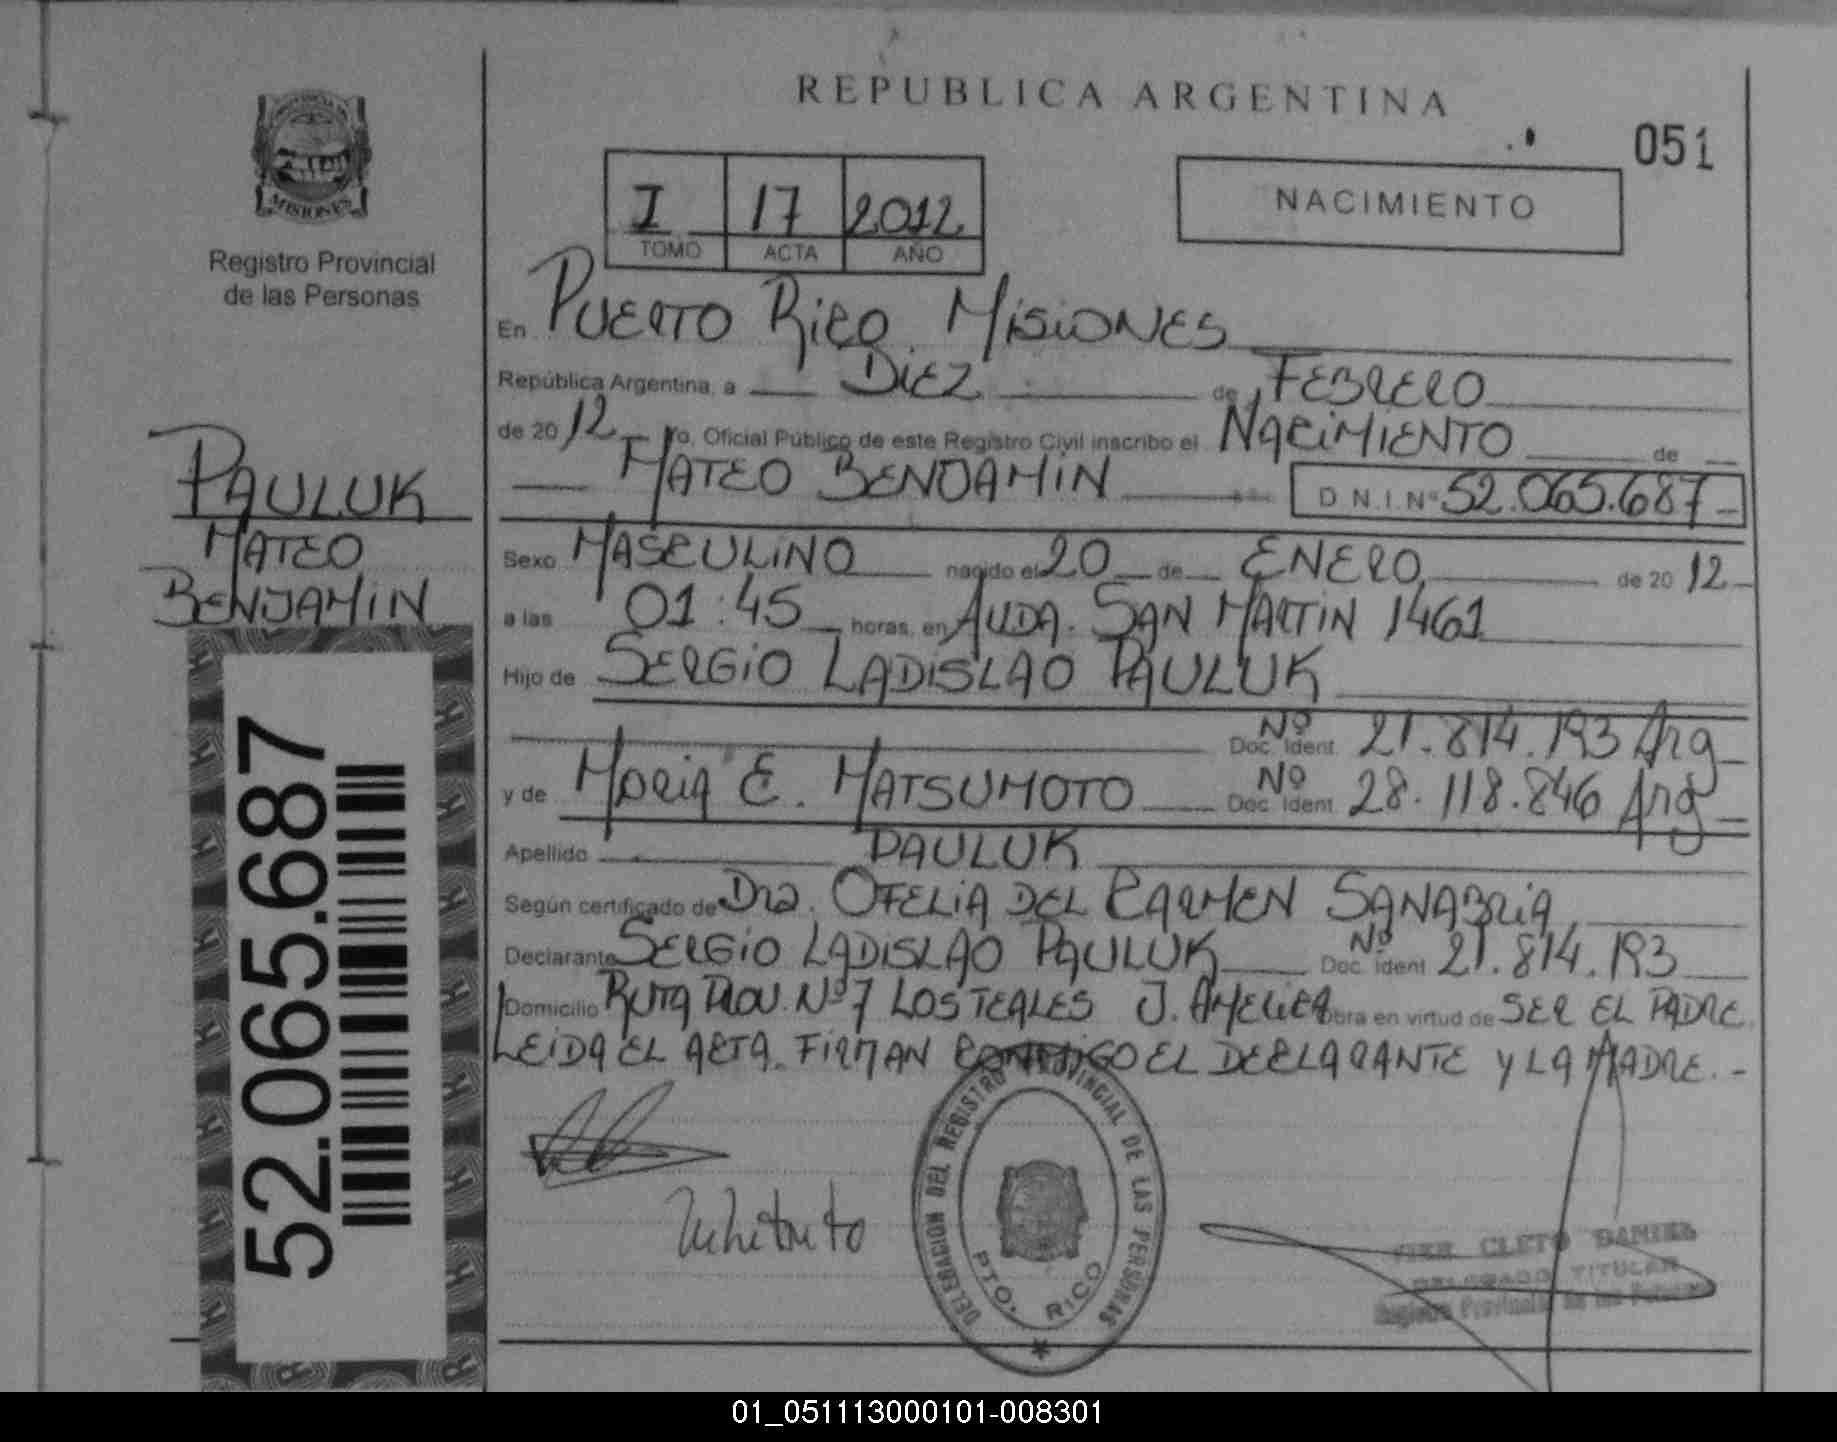 REPUBLICA ARGENTINA
051
MISIONES
Registro Provincial
de las Personas
I 17 2012
TOMO ACTA AÑO
NACIMIENTO
En PUERTO RICO MISIONES
República Argentina, a DIEZ de FEBRERO
de 2012 Yo, Oficial Público de este Registro Civil inscribo el NACIMIENTO de
MATEO BENJAMIN D.N.I. Nº 52.065.687
PAULUK
MATEO
BENJAMIN
Sexo MASCULINO nacido el 20 de ENERO de 2012
a las 01:45 horas, en AVDA. SAN MARTIN 1461
Hijo de SERGIO LADISLAO PAULUK
Nº
Doc. Ident. 21.814.193 Arg
y de MARIA E. MATSUMOTO Nº Doc. Ident. 28.118.846 Arg
Apellido PAULUK
Según certificado de Dra. OFELIA DEL CARMEN SANABRIA
Declarante SERGIO LADISLAO PAULUK Nº Doc. Ident 21.814.193
Domicilio RUTA PROV. Nº 7 LOS TEALES J. AMERICA obra en virtud de SER EL PADRE
LEIDA EL ACTA. FIRMAN CONMIGO EL DECLARANTE Y LA MADRE.-
52.065.687
DELEGACION DEL REGISTRO PROVINCIAL DE LAS PERSONAS
PTO. RICO
CLETO DANIEL
DELEGADO TITULAR
Registro Provincial de las Personas
01_051113000101-008301